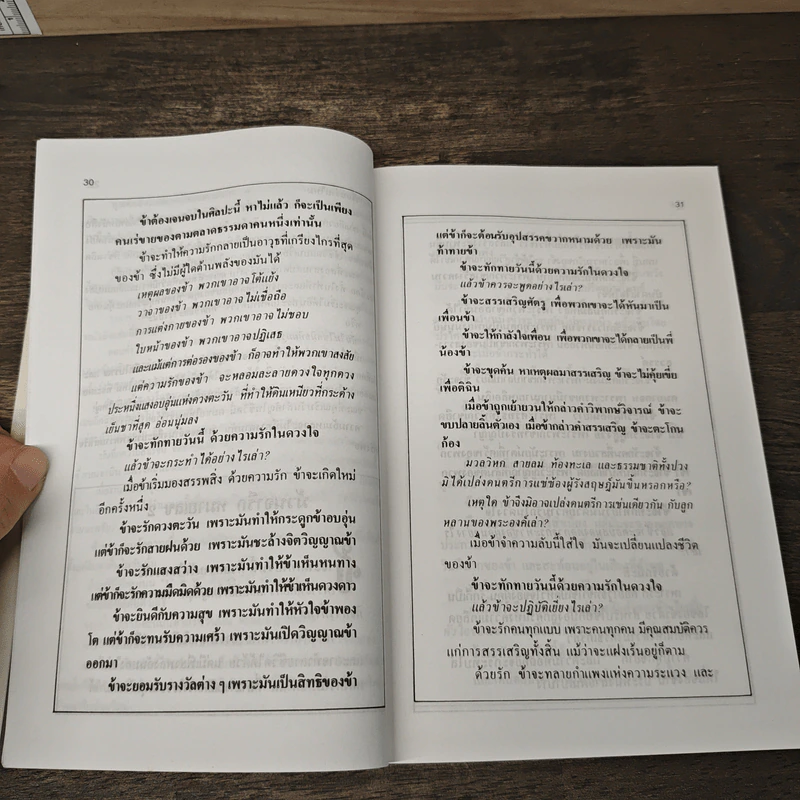 30
ข้าต้องเจนจบในศิลปะนี้ หาไม่แล้ว ก็จะเป็นเพียง
คนเร่ขายของตามตลาดธรรมดาคนหนึ่งเท่านั้น
ข้าจะทำให้ความรักกลายเป็นอาวุธที่เกรียงไกรที่สุด
ของข้า ซึ่งไม่มีผู้ใดต้านพลังของมันได้
เหตุผลของข้า พวกเขาอาจโต้แย้ง
วาจาของข้า พวกเขาอาจไม่เชื่อถือ
การแต่งกายของข้า พวกเขาอาจไม่ชอบ
ใบหน้าของข้า พวกเขาอาจปฏิเสธ
และแม้แต่การต่อรองของข้า ก็อาจทำให้พวกเขาสงสัย
แต่ความรักของข้า จะหลอมละลายดวงใจทุกดวง
ประหนึ่งแสงอบอุ่นแห่งดวงตะวัน ที่ทำให้ดินเหนียวที่กระด้าง
เย็นชาที่สุด อ่อนนุ่มลง
ข้าจะทักทายวันนี้ ด้วยความรักในดวงใจ
แล้วข้าจะกระทำได้อย่างไรเล่า?
เมื่อข้าเริ่มมองสรรพสิ่ง ด้วยความรัก ข้าจะเกิดใหม่
อีกครั้งหนึ่ง
ข้าจะรักดวงตะวัน เพราะมันทำให้กระดูกข้าอบอุ่น
แต่ข้าก็จะรักสายฝนด้วย เพราะมันชะล้างจิตวิญญาณข้า
ข้าจะรักแสงสว่าง เพราะมันทำให้ข้าเห็นหนทาง
แต่ข้าก็จะรักความมืดมิดด้วย เพราะมันทำให้ข้าเห็นดวงดาว
ข้าจะยินดีกับความสุข เพราะมันทำให้หัวใจข้าพอง
โต แต่ข้าก็จะทนรับความเศร้า เพราะมันเปิดวิญญาณข้า
ออกมา
ข้าจะยอมรับรางวัลต่าง ๆ เพราะมันเป็นสิทธิของข้า
31
แต่ข้าก็จะต้อนรับอุปสรรคขวากหนามด้วย เพราะมัน
ท้าทายข้า
ข้าจะทักทายวันนี้ด้วยความรักในดวงใจ
แล้วข้าควรจะพูดอย่างไรเล่า?
ข้าจะสรรเสริญศัตรู เพื่อพวกเขาจะได้หันมาเป็น
เพื่อนข้า
ข้าจะให้กำลังใจเพื่อน เพื่อพวกเขาจะได้กลายเป็นพี่
น้องข้า
ข้าจะขุดค้น หาเหตุผลมาสรรเสริญ ข้าจะไม่คุ้ยเขี่ย
เพื่อติฉิน
เมื่อข้าถูกเย้ายวนให้กล่าวคำวิพากษ์วิจารณ์ ข้าจะ
ขบปลายลิ้นตัวเอง เมื่อข้ากล่าวคำสรรเสริญ ข้าจะตะโกน
ก้อง
มวลวิหค สายลม ท้องทะเล และธรรมชาติทั้งปวง
มิได้เปล่งดนตรีการแซ่ซ้องผู้รังสฤษฎ์มันขึ้นหรอกหรือ?
เหตุใด ข้าจึงมิอาจเปล่งดนตรีการเช่นเดียวกัน กับลูก
หลานของพระองค์เล่า?
เมื่อข้าจำความลับนี้ใส่ใจ มันจะเปลี่ยนแปลงชีวิต
ของข้า
ข้าจะทักทายวันนี้ด้วยความรักในดวงใจ
แล้วข้าจะปฏิบัติเยี่ยงไรเล่า?
ข้าจะรักคนทุกแบบ เพราะคนทุกคน มีคุณสมบัติควร
แก่การสรรเสริญทั้งสิ้น แม้ว่าจะแฝงเร้นอยู่ก็ตาม
ด้วยรัก ข้าจะทลายกำแพงแห่งความระแวง และ